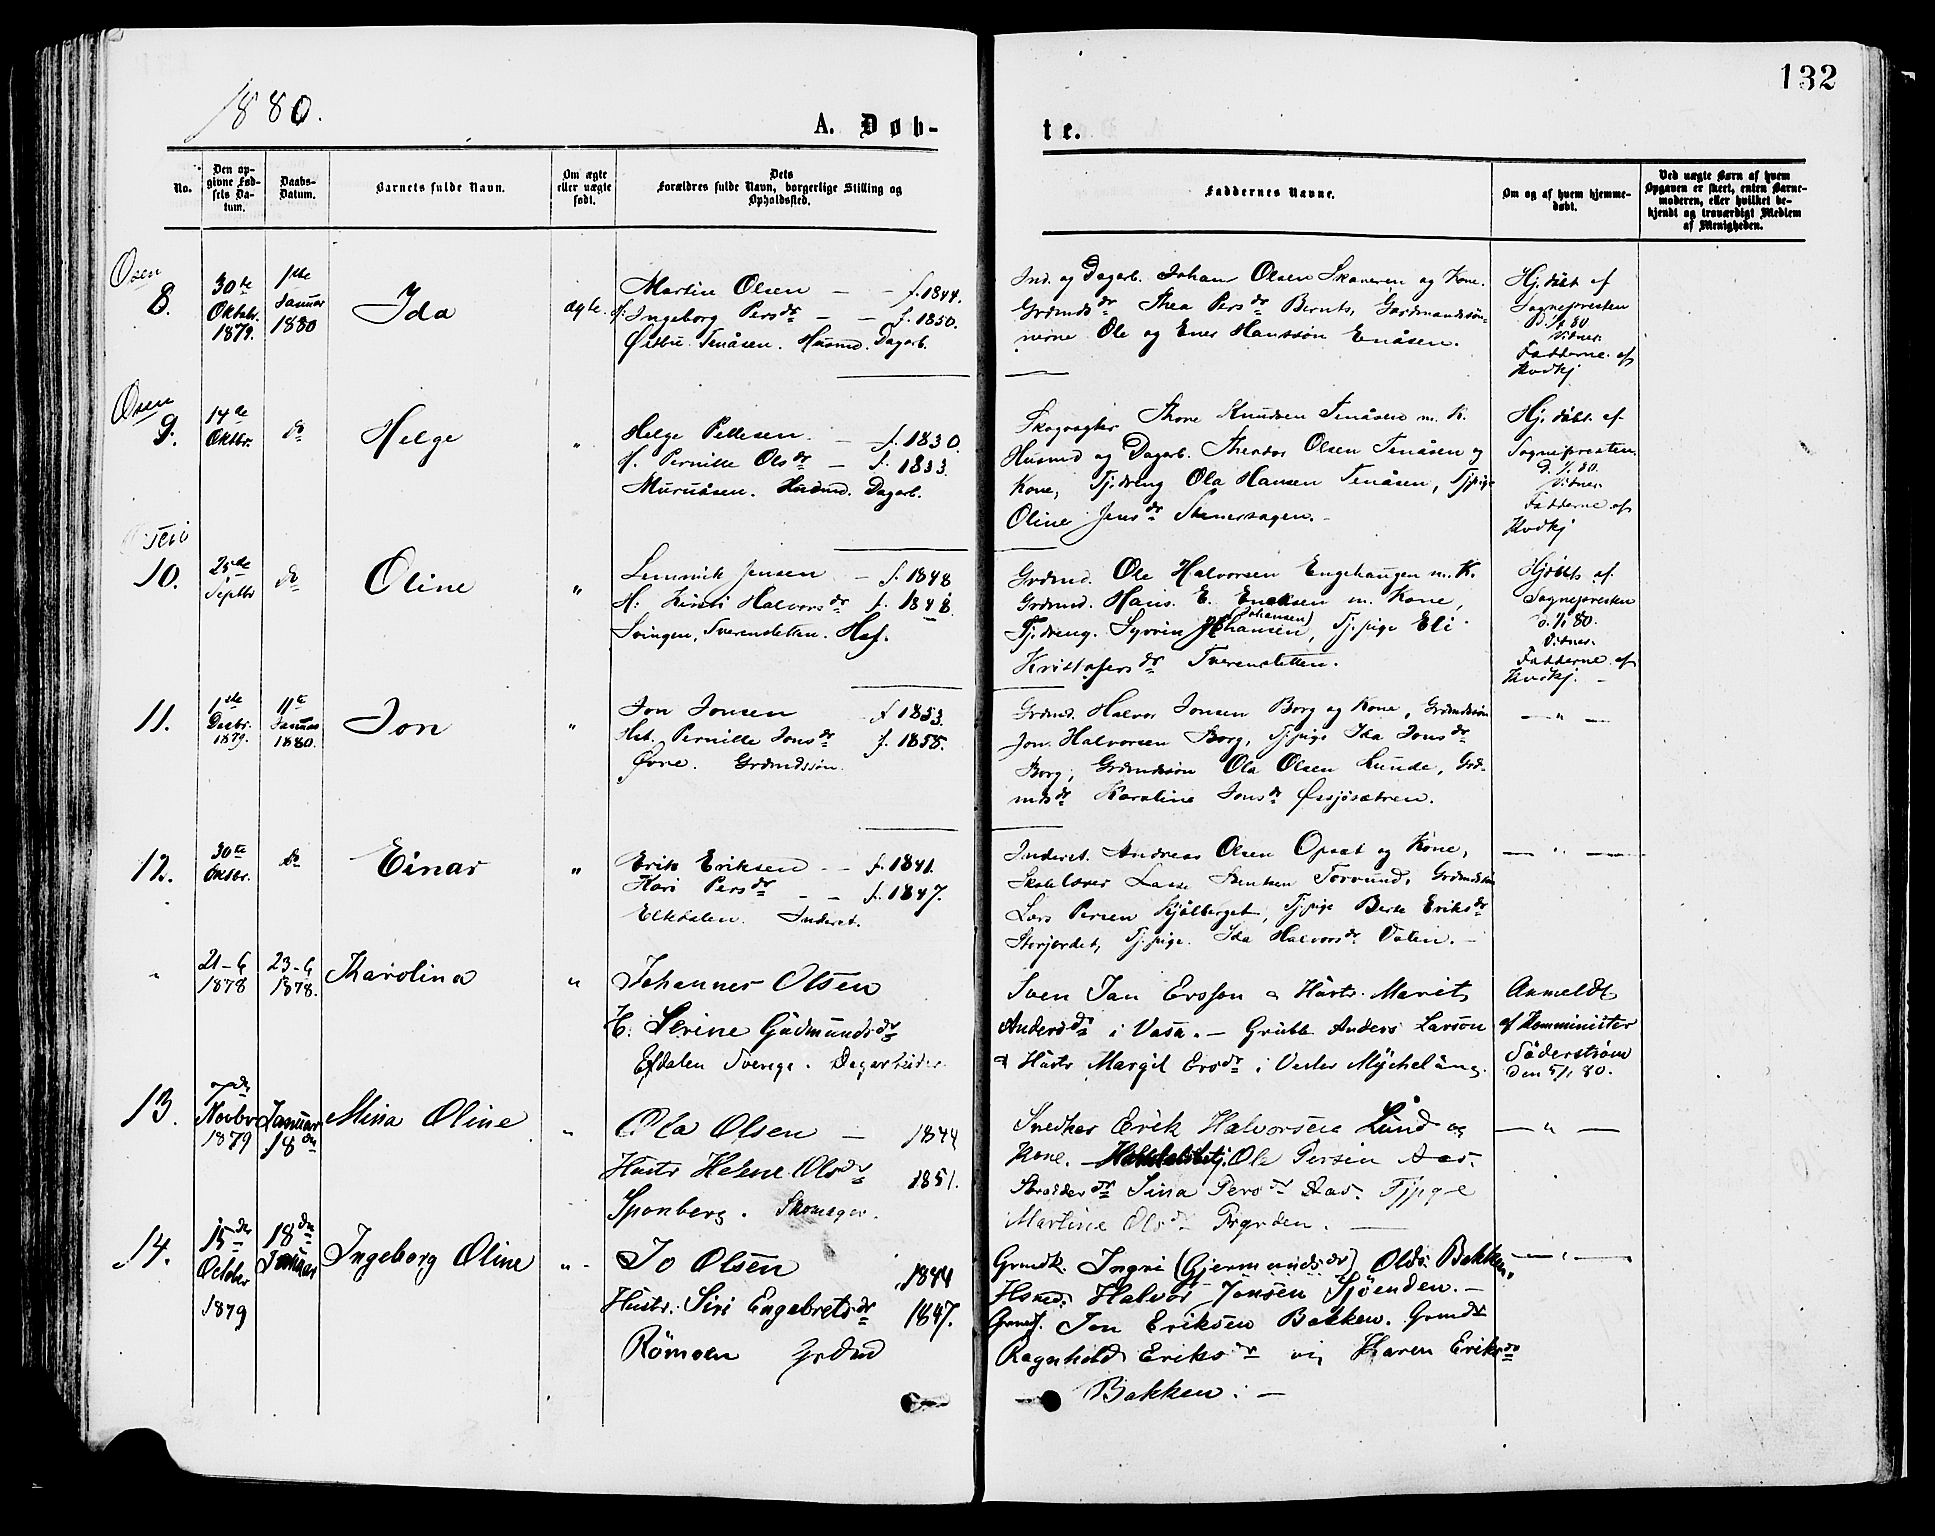 132
1880.
A. Døb-
te.
No.
Den op-
givne Fød-
sels Da-
tum.
Daabs-
Datum.
Barnets fulde Navn.
Om ægte
eller uægte
født.
Dets
Forældres fulde Navn, borgerlige Stilling og
Opholdssted.
Faddernes Navne.
Om og af hvem hjemme-
døbt.
Ved uægte Børn af hvem
Opgaven er skeet, enten Barne-
moderen, eller hvilket be-
kjendt og troværdigt Medlem
af Menigheden.
Osen
8.
30te
Oktbr.
1879.
1ste
Januar
1880
Ida
ægte.
Martin Olsen — - f. 1844.
H: Ingeborg Persdr - - f. 1850.
Østbu. Tenåsen. Husmd. Dagarb.
Ind. og Dagarb. Johan Olsen Skaveren og Kone.
Grdmdsdr Thea Persdr Bernts, Gardmandssøn-
nerne Ole og Ener Hanssøn Enåsen.
Hj. døbt af
Sognepresten
d. 1/1 80
Vidner.
Fadderne af
Hvdkj
Osen
9.
14de
Oktbr.
do
Helge
"
Helge Pettesen. — f. 1830.
H. Pernille Olsdr — f. 1833.
Muruåsen. Husmd. Dagarb.
Skogvagter Thore Knudsen Tenåsen m. K.
Husmd og Dagarb. Theodor Olsen Tenåsen og
Kone, Tj.dreng Ola Hansen Tenåsen, Tj.pige
Oline Jensdr Stenershagen. -
Hj. døbt af
Sognepresten.
d. 1/1 80.
Vidner.
Fadderne af
Hvdkj
10.
25de
Septbr
do
Oline
"
Lemmik Jensen — f. 1848
H: Kirsti Halvorsdr f. 1848.
Svingen, Tverensletten. Husf.
Grdmd. Ole Halvorsen Engehaugen m. K.
Grdmd. Hans. E. Enoksen m. Kone,
(Johansen)
Tj.dreng. Syverin Johansen, Tj.pige Eli
Kristofersdr Tverensletten.
Hjdøbt af.
Sognepresten
d. 1/1 80.
Vidner.
Fadderne af
Hvdkj. -
11.
1ste
Decbr.
1879.
11te
Januar
1880.
Jon
"
Jon Jonsen f 1853.
Hst. Pernille Jonsdr f. 1855.
Øvre. Grdmdssøn.
Grdmd. Halvor Jonsen Borg og Kone, Grdmdssøn
Jon Halvorsen Borg, Tj.pige Ida Jonsdr
Borg, Grdmdssøn Ola Olsen Lunde, Grd-
mdsdr Karoline Jonsdr Øssjøsætren.
— " —
12.
30te
Oktbr.
do
Einar
"
Erik Eriksen - - f. 1841.
Kari Persdr - - f. 1847.
Elkdalen. Inderst.
Inderst. Andreas Olsen Opsat og Kone,
Skolelærer Lasse Bentsen Torvund, Grdmdssøn
Lars Persen Kjølberget, Tj.pige Berte Eriksdr
Storjordet, Tj.pige. Ida Halvorsdr Dalen. -
— " —
"
21-6
1878
23-6
1878.
Karolina
"
Johannes Olsen
H: Serine Gudmundsdr
Efdalen Sverige. Dagarbeider
Sven Jan Ersson & Hustr. Marit
Andersdr i Vasa. - Grubb Anders Larson
& Hustr Margit Ersdr i Vester Mÿchelång.
Anmeldt
af Komminister
Söderström
den 5/1 80.
13.
7de
Novbr
1879
Januar
18de
Mina Oline
"
Ola Olsen — 1844
Hustr Helene Olsdr 1851.
Sponberg. Skomager.
Snedker Erik Halvorsen Lund og
Kone. Ole Persen Aas.
Skrædderdr Sina Persdr Aas. Tjpige
Martine Olsdr Prgrden. —
— " —
14.
15de
October
1879
18de
Januar
Ingeborg Oline
"
Jo Olsen 1844
Hustr. Siri Engebretsdr 1847.
Römoen Grdmd
Grmdk. Ingri (Gjermundsdr) Olds. Bakken.
Hsmd. Halvor Jonsen Sjöenden. -
Grmds. Jon Eriksen Bakken. Grmdsdr
Ragnhild Eriksdr og Karen Eriksdr
Bakken. -
— " —